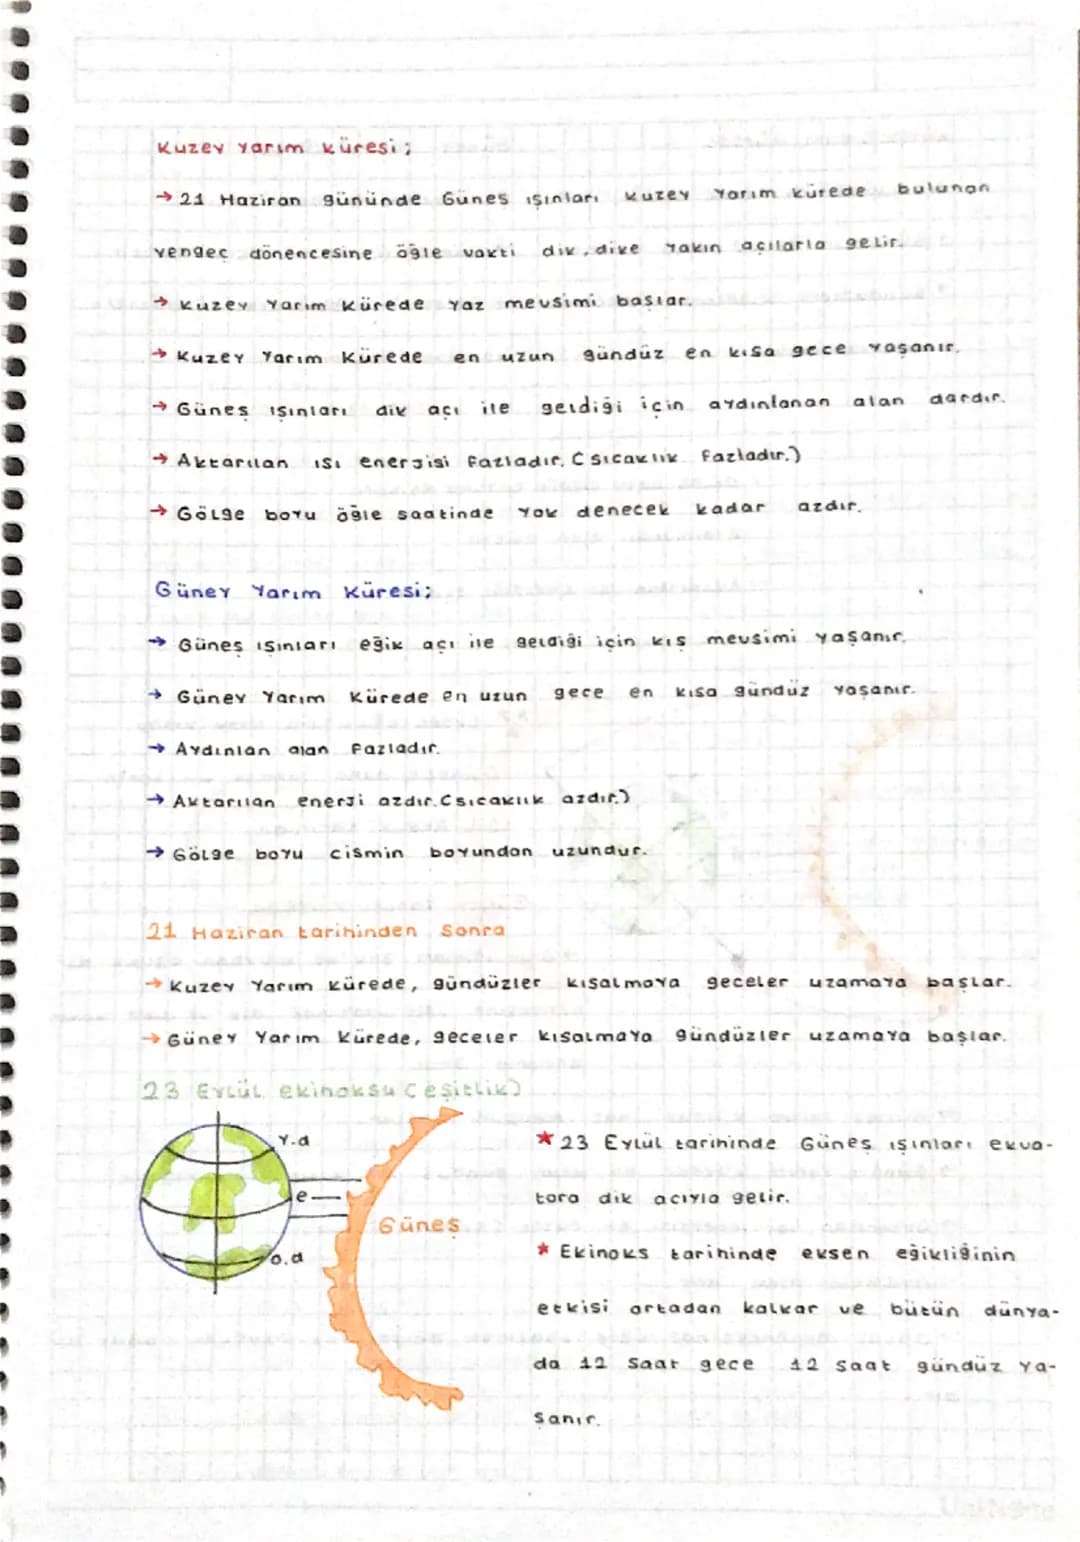 Kuzey Yarım Küresi;
→ 21 Haziran gününde Güneş ışınları Kuzey Yarım Kürede bulunan
Yengeç dönencesine öğle vakti dik, dike yakın açılarla gelir.
→ Kuzey Yarım Kürede Yaz mevsimi başlar.
→ Kuzey Yarım Kürede en uzun gündüz en kısa gece yaşanır.
→ Güneş ışınları dik açı ile geldiği için aydınlanan alan dardır.
→ Aktarılan ısı enerjisi fazladır. (sıcaklık fazladır.)
→ Gölge boyu öğle saatinde yok denecek kadar azdır.
Güney Yarım Küresi;
→ Güneş ışınları eğik açı ile geldiği için kış mevsimi yaşanır.
→ Güney Yarım Kürede en uzun gece en kısa gündüz yaşanır.
→ Aydınlan alan fazladır.
→ Aktarılan enerji azdır. (sıcaklık azdır.)
→ Gölge boyu cismin boyundan uzundur.
21 Haziran tarihinden Sonra
→ Kuzey Yarım Kürede, gündüzler kısalmaya geceler uzamaya başlar.
→ Güney Yarım Kürede, geceler kısalmaya gündüzler uzamaya başlar.
23 Eylül ekinoksu (eşitlik)
Y.d
e
o.d
Güneş
★ 23 Eylül tarihinde Güneş ışınları ekva-
tora dik acıyla gelir.
★ Ekinoks tarihinde eksen eğikliğinin
etkisi ortadan kalkar ve bütün dünya-
da 12 Saat gece 12 Saat gündüz ya-
şanır.